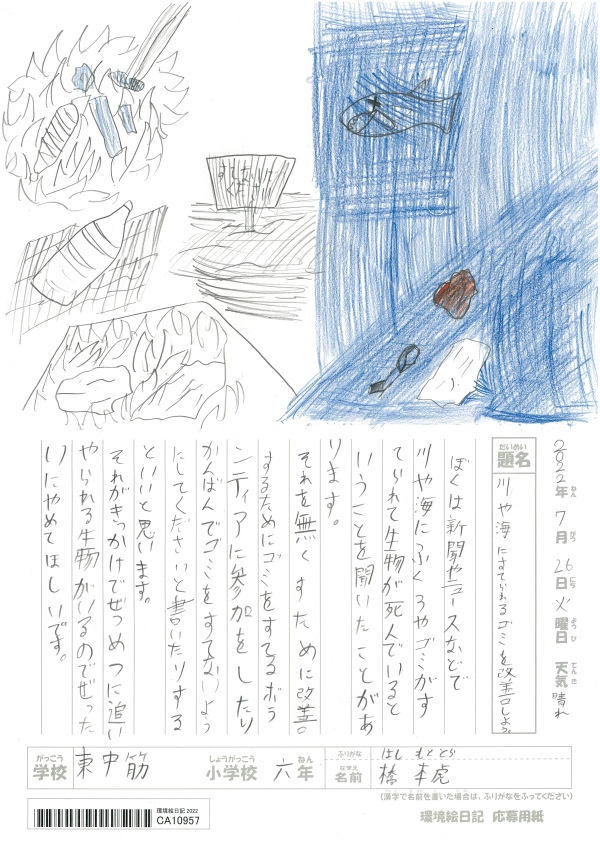 すてないで
ください
2022年ねん 7月がつ 26日にち 火曜日ようび 天気てんき 晴れ
題名だいめい 川や海にすてられるゴミを改善しよう
ぼくは新聞やニュースなどで
川や海にふくろやゴミがす
てられて生物が死んでいると
いうことを聞いたことがあ
ります。
それを無くすために改善
するためにゴミをすてるボラ
ンティアに参加をしたり
かんばんでゴミをすてないよう
にしてくださいと書いたりする
といいと思います。
それがきっかけでぜつめつに追い
やられる生物がいるのでぜった
いにやめてほしいです。
学校がっこう 東中筋 小学校しょうがっこう 六年ねん
ふりがな はし もと とら
名前なまえ 橋 本 虎
(漢字で名前を書いた場合は、ふりがなをふってください)
環境絵日記 2022
CA10957
環境絵日記 応募用紙